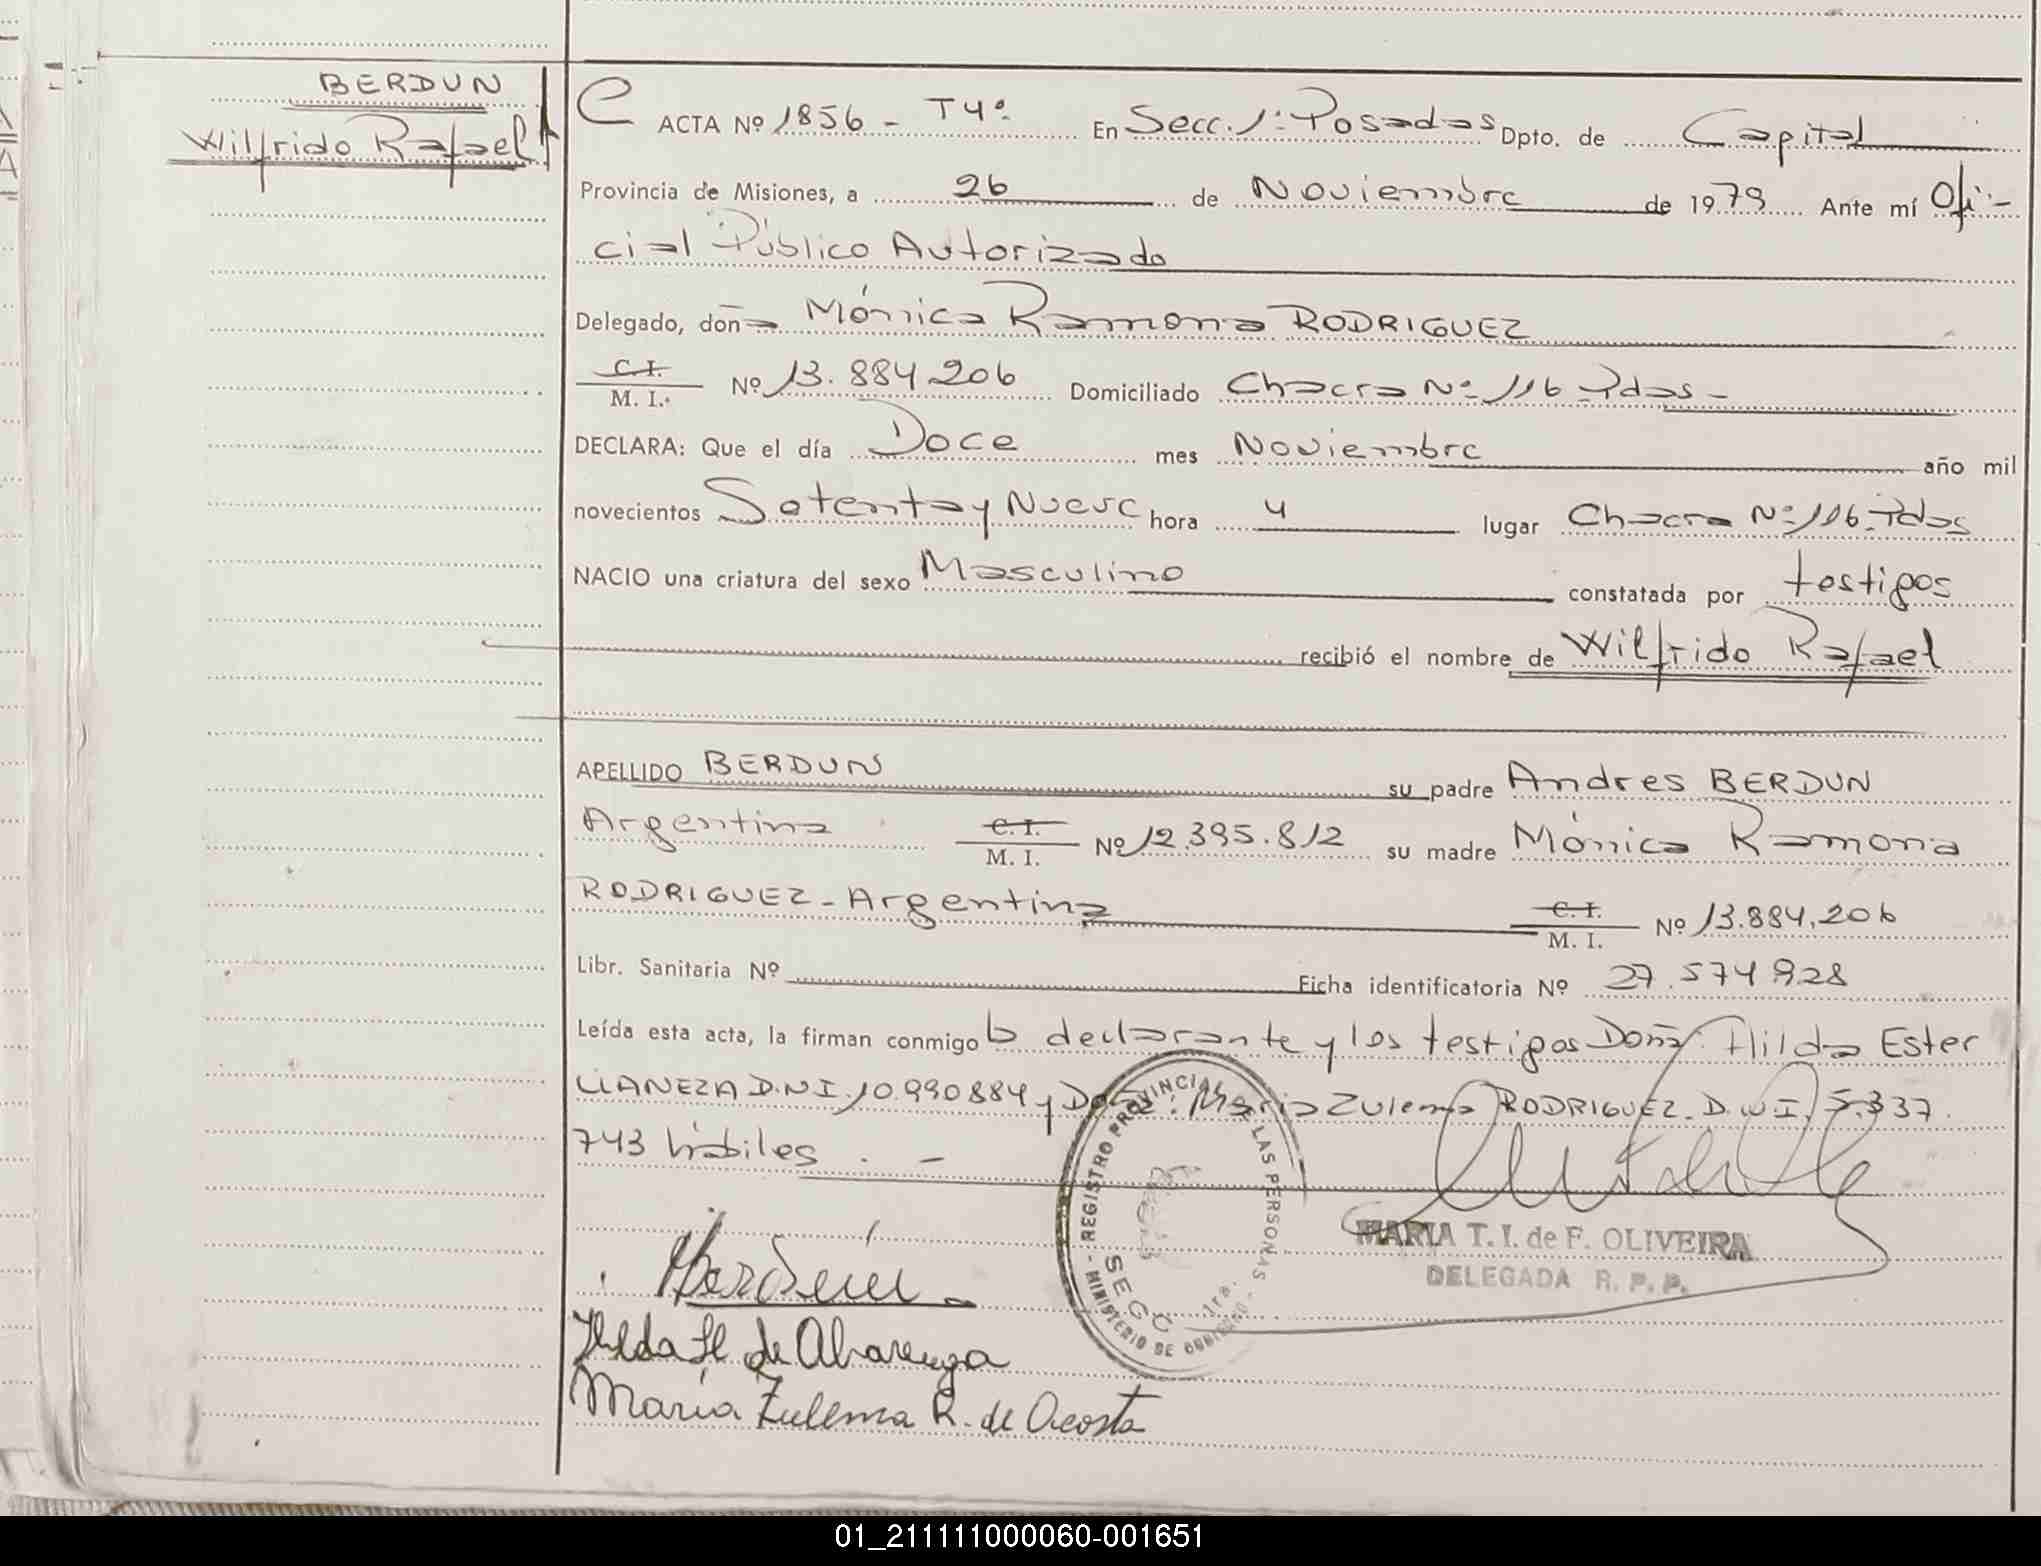 BERDUN
Wilfrido Rafael
ACTA Nº 1856 - T4º En Secc. 1ª Posadas Dpto. de Capital
Provincia de Misiones, a 26 de Noviembre de 1979 Ante mí Ofi-
cial Público Autorizado
Delegado, doña Mónica Ramona RODRIGUEZ
C.I. M. I. Nº 13.884.206 Domiciliado Chacra Nº 116 - Pdas -
DECLARA: Que el día Doce mes Noviembre año mil
novecientos Setenta y Nueve hora 4 lugar Chacra Nº 116 - Pdas
NACIO una criatura del sexo Masculino constatada por testigos
recibió el nombre de Wilfrido Rafael
APELLIDO BERDUN su padre Andres BERDUN
Argentino C.I. M. I. Nº 12.395.812 su madre Mónica Ramona
RODRIGUEZ - Argentina C.I. M. I. Nº 13.884.206
Libr. Sanitaria Nº Ficha identificatoria Nº 27.574.928
Leída esta acta, la firman conmigo la declarante y los testigos Doña Hilda Ester
LLANEZA D.N.I. 10.990884 y Doña: Maria Zulema RODRIGUEZ. D.N.I. 5.337.
743 hábiles . -
- REGISTRO PROVINCIAL DE LAS PERSONAS - MINISTERIO DE GOBIERNO
SECC. 1ra.
MARIA T. I. de F. OLIVEIRA
DELEGADA R. P. P.
Hilda Ll de Alvarenga
María Zulema R. de Acosta
01_211111000060-001651